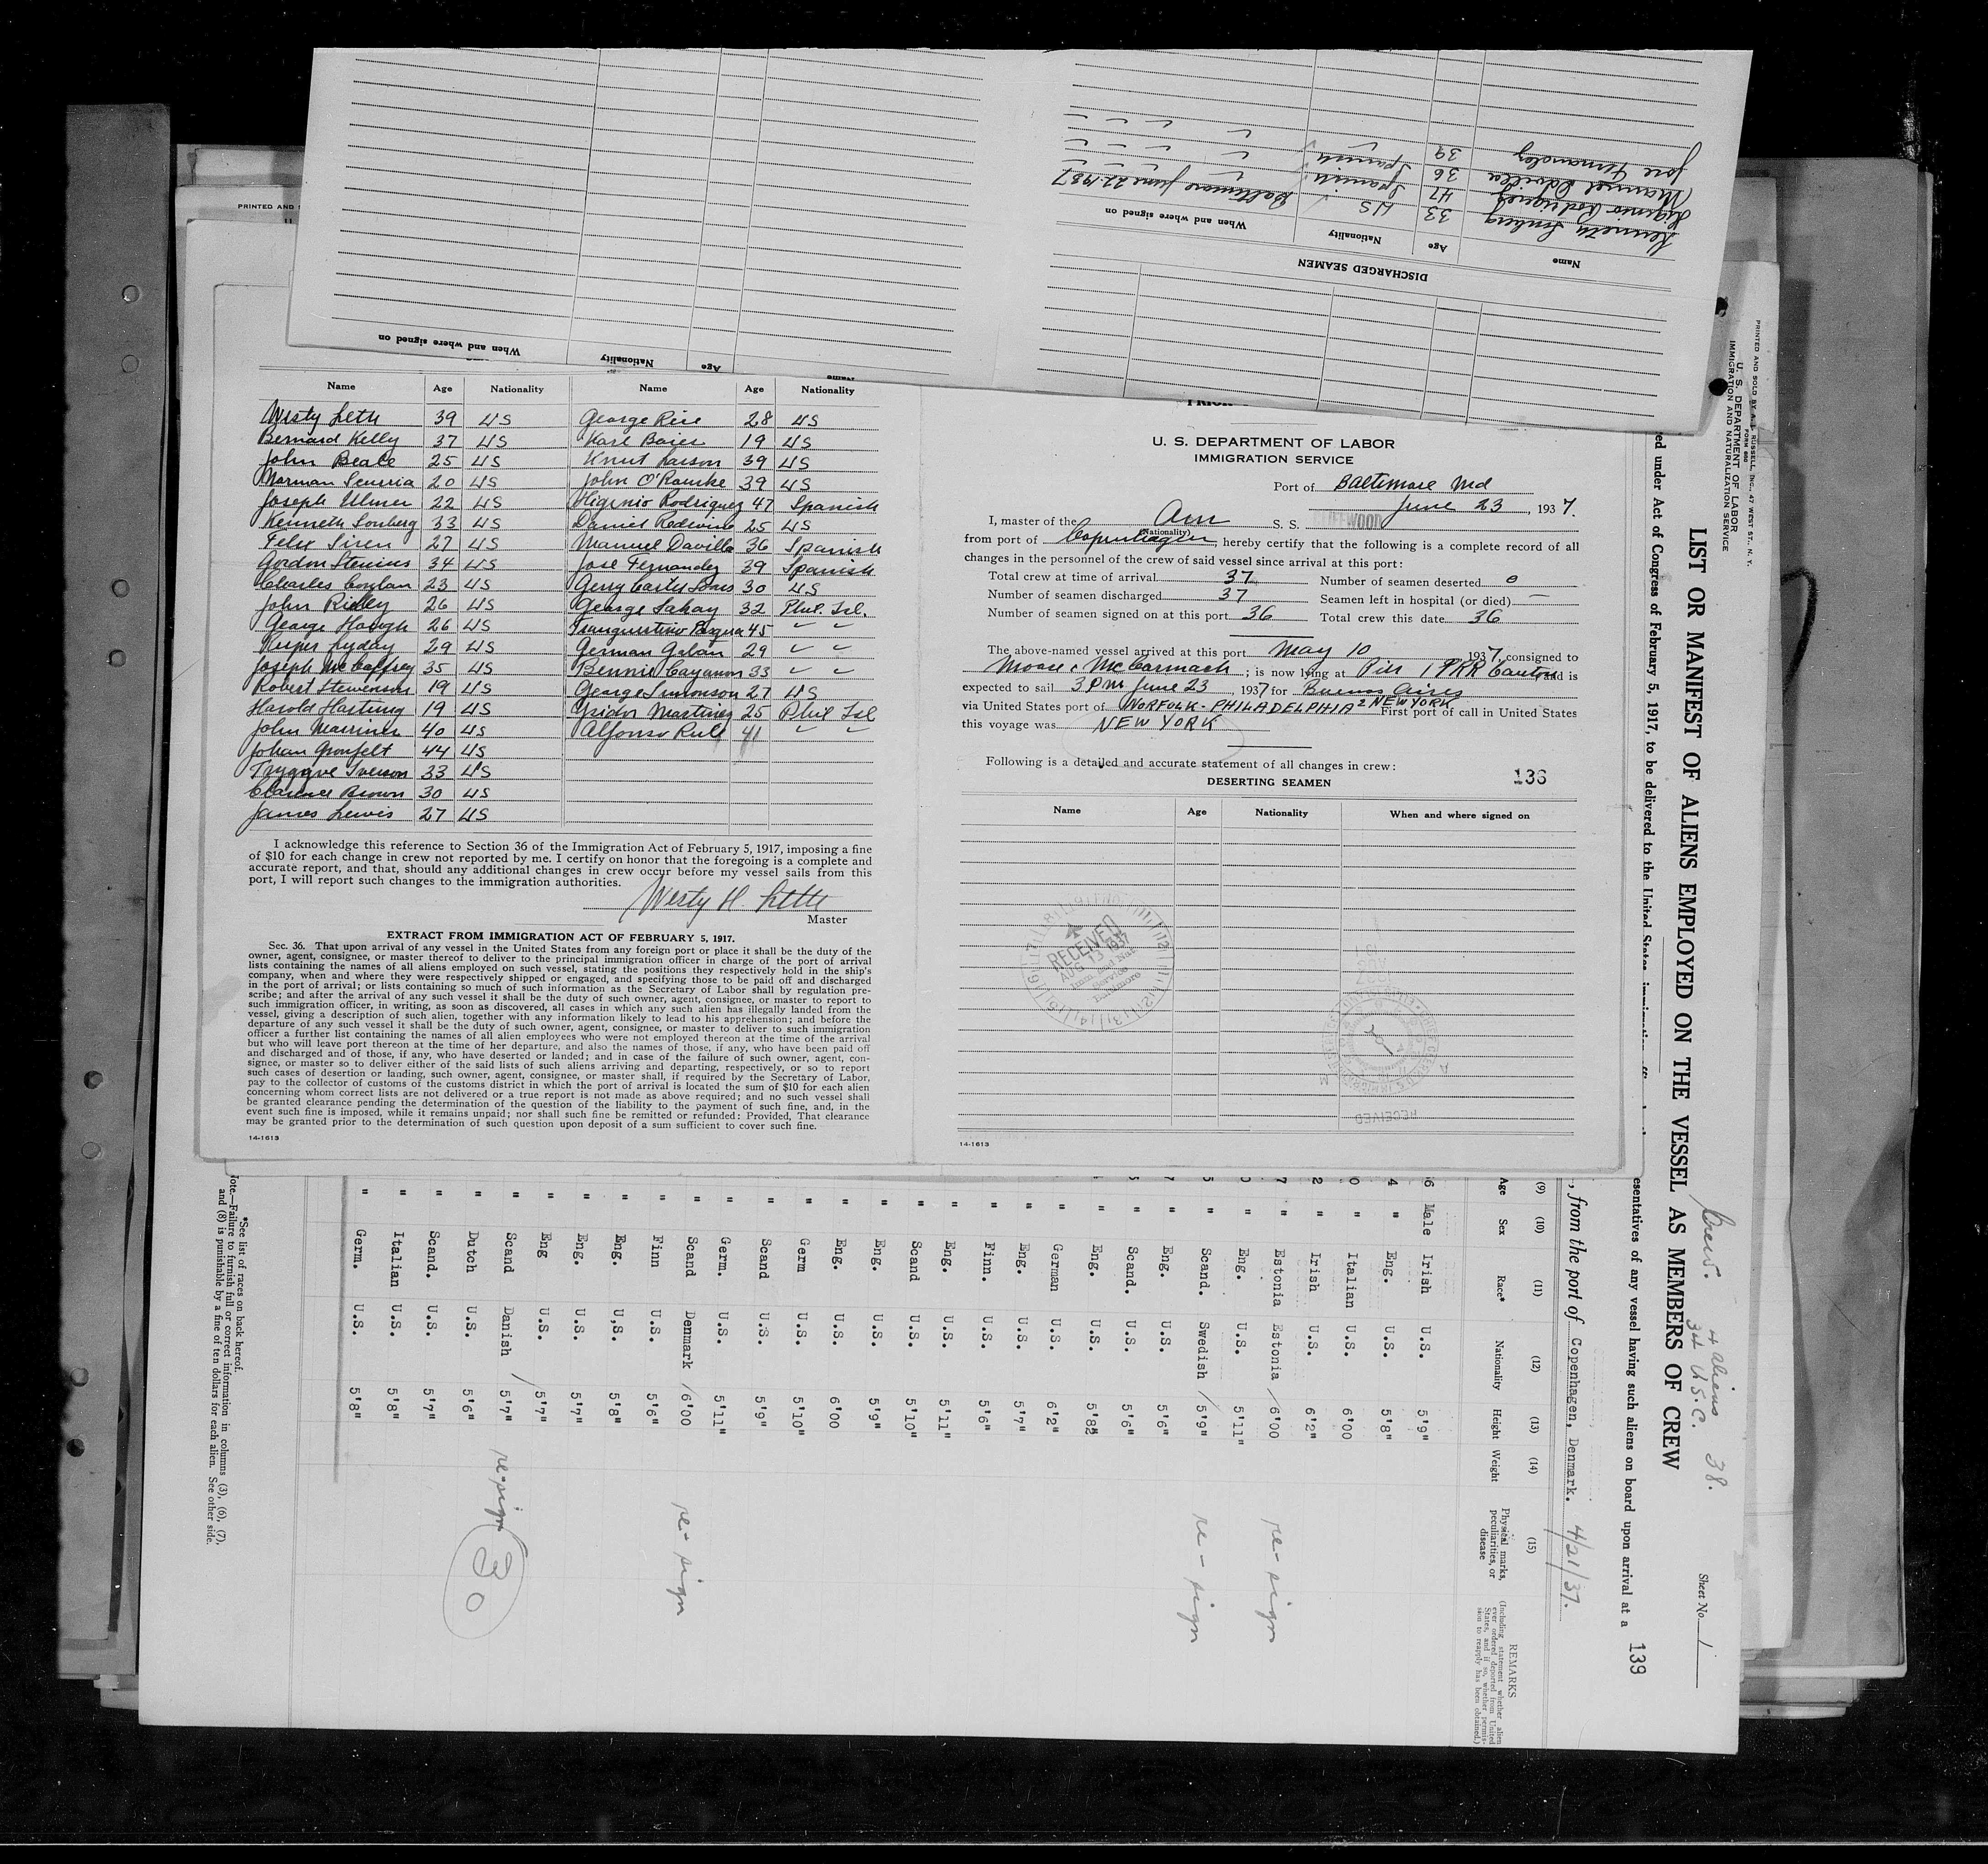 PRINTED AND S
When and where signed on
Nationality
Age
Name
Jose Fernandez 39
Manuel Davilla 36 Spanish
Higinio Rodriguez 47 Spanish
Kenneth Lonberg 33 US Baltimore June 22-1937
Name Age Nationality When and where signed on
DISCHARGED SEAMEN
Name Age Nationality Name Age Nationality
Westy Leth 39 US George Rice 28 US
Bernard Kelly 37 US Karl Baier 19 US
John Beale 25 US Knut Larson 39 US
Norman Scurria 20 US John O'Rourke 39 US
Joseph Ulmer 22 US Higinio Rodriguez 47 Spanish
Kenneth Lonberg 33 US Daniel Redwine 25 US
Felix Siren 27 US Manuel Davilla 36 Spanish
Gordon Stenius 34 US Jose Fernandez 39 Spanish
Charles Coylan 23 US Gerry 30 US
John Ridley 26 US George Lahay 32 Phil. Isl.
George Hough 26 US 45 " "
Kasper Lyday 29 US German Galan 29 " "
Joseph McCaffrey 35 US Bennie Cayanan 33 " "
Robert Stevenson 19 US George Simonson 27 US
Harold Hartung 19 US Isidor Martinez 25 Phil Isl
John Marriner 40 US Alfonso Rule 41 " "
Johan Gronfelt 44 US
Tryggve Iverson 33 US
Clarence Brown 30 US
James Lewis 27 US
I acknowledge this reference to Section 36 of the Immigration Act of February 5, 1917, imposing a fine
of $10 for each change in crew not reported by me. I certify on honor that the foregoing is a complete and
accurate report, and that, should any additional changes in crew occur before my vessel sails from this
port, I will report such changes to the immigration authorities.
Westy H. Leth
Master
EXTRACT FROM IMMIGRATION ACT OF FEBRUARY 5, 1917.
Sec. 36. That upon arrival of any vessel in the United States from any foreign port or place it shall be the duty of the
owner, agent, consignee, or master thereof to deliver to the principal immigration officer in charge of the port of arrival
lists containing the names of all aliens employed on such vessel, stating the positions they respectively hold in the ship's
company, when and where they were respectively shipped or engaged, and specifying those to be paid off and discharged
in the port of arrival; or lists containing so much of such information as the Secretary of Labor shall by regulation pre-
scribe; and after the arrival of any such vessel it shall be the duty of such owner, agent, consignee, or master to report to
such immigration officer, in writing, as soon as discovered, all cases in which any such alien has illegally landed from the
vessel, giving a description of such alien, together with any information likely to lead to his apprehension; and before the
departure of any such vessel it shall be the duty of such owner, agent, consignee, or master to deliver to such immigration
officer a further list containing the names of all alien employees who were not employed thereon at the time of the arrival
but who will leave port thereon at the time of her departure, and also the names of those, if any, who have been paid off
and discharged and of those, if any, who have deserted or landed; and in case of the failure of such owner, agent, con-
signee, or master so to deliver either of the said lists of such aliens arriving and departing, respectively, or so to report
such cases of desertion or landing, such owner, agent, consignee, or master shall, if required by the Secretary of Labor,
pay to the collector of customs of the customs district in which the port of arrival is located the sum of $10 for each alien
concerning whom correct lists are not delivered or a true report is not made as above required; and no such vessel shall
be granted clearance pending the determination of the question of the liability to the payment of such fine, and, in the
event such fine is imposed, while it remains unpaid; nor shall such fine be remitted or refunded: Provided, That clearance
may be granted prior to the determination of such question upon deposit of a sum sufficient to cover such fine.
14-1613
U. S. DEPARTMENT OF LABOR
IMMIGRATION SERVICE
Port of Baltimore Md
June 23, 1937.
I, master of the Am S. S. WOOD
(Nationality)
from port of Copenhagen, hereby certify that the following is a complete record of all
changes in the personnel of the crew of said vessel since arrival at this port:
Total crew at time of arrival 37 Number of seamen deserted 0
Number of seamen discharged 37 Seamen left in hospital (or died) —
Number of seamen signed on at this port 36 Total crew this date 36
The above-named vessel arrived at this port May 10 1937, consigned to
Moore & McCormack; is now lying at Pier 1 PRR Canton and is
expected to sail 3 pm June 23, 1937 for Buenos Aires
via United States port of NORFOLK-PHILADELPHIA & NEW YORK First port of call in United States
this voyage was NEW YORK
Following is a detailed and accurate statement of all changes in crew:
136
DESERTING SEAMEN
Name Age Nationality When and where signed on
RECEIVED
AUG 13 1937
Baltimore
RECEIVED
14-1613
PRINTED AND SOLD BY A. E. RUSSELL, INC., 47 WEST ST. N. Y.
FORM 680
U. S. DEPARTMENT OF LABOR
IMMIGRATION AND NATURALIZATION SERVICE
Sheet No. 1
4 aliens 38.
34 U.S.C.
LIST OR MANIFEST OF ALIENS EMPLOYED ON THE VESSEL AS MEMBERS OF CREW
ed under Act of Congress of February 5, 1917, to be delivered to the United States immigration
esentatives of any vessel having such aliens on board upon arrival at a
139
, from the port of Copenhagen, Denmark. 4/21/37.
(9) (10) (11) (12) (13) (14) (15)
Age Sex Race* Nationality Height Weight Physical marks, peculiarities, or disease
REMARKS
(Including statement whether alien ever ordered deported from United States, and if so, whether permission to reapply has been obtained.)
6 Male Irish U.S. 5'9"
4 " Eng. U.S. 5'8"
0 " Italian U.S. 6'00
2 " Irish U.S. 6'2"
7 " Estonia Estonia / 6'00 re-sign
0 " Eng. U.S. 5'11"
5 " Scand. Swedish / 5'9" re-sign
7 " Eng. U.S. 5'6"
5 " Scand. U.S. 5'6"
" Eng. U.S. 5'8½
" German U.S. 6'2"
" Eng. U.S. 5'7"
" Finn. U.S. 5'6"
" Eng. U.S. 5'11"
" Scand U.S. 5'10"
" Eng. U.S. 5'9"
" Eng. U.S. 6'00
" Germ U.S. 5'10"
" Scand U.S. 5'9"
" Germ. U.S. 5'11"
" Scand Denmark / 6'00 re-sign
" Finn U.S. 5'6"
" Eng. U.S. 5'8"
" Eng. U.S. 5'7"
" Eng U.S. 5'7"
" Scand Danish / 5'7" re-sign
" Dutch U.S. 5'6" 30
" Scand. U.S. 5'7"
" Italian U.S. 5'8"
" Germ. U.S. 5'8"
*See list of races on back hereof.
ote.—Failure to furnish full or correct information in columns (3), (6), (7),
and (8) is punishable by a fine of ten dollars for each alien. See other side.